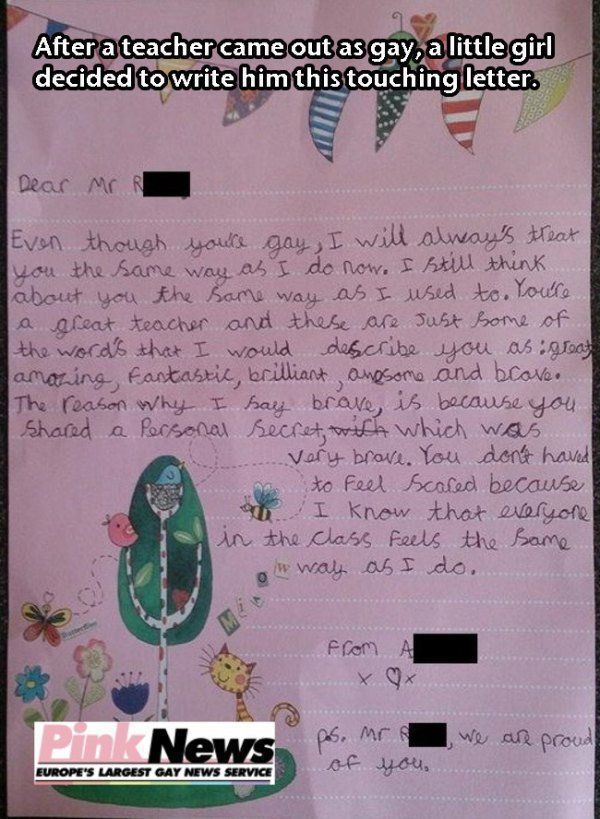 After a teacher came out as gay, a little girl
decided to write him this touching letter.
Dear Mr R
Even though you're gay, I will always treat
you the same way as I do now. I still think
about you the same way as I used to. You're
a great teacher and these are just some of
the word's that I would describe you as: great
amazing, fantastic, brilliant, awesome and brave.
The reason why I say brave, is because you
shared a Personal secret, with which was
very brave. You don't haved
to feel scared because
I know that everyone
in the class feels the same
way as I do.
Miaow
From A
x ♡ x
ps. Mr R, we are proud
of you.
PinkNews
EUROPE'S LARGEST GAY NEWS SERVICE